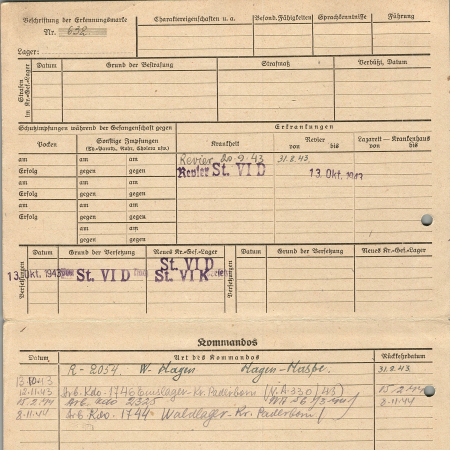 Beschriftung der Erkennungsmarke
Charaktereigenschaften u. a.
Besond. Fähigkeiten
Sprachkenntnisse
Führung
Nr. 632
Lager:
Strafen im Kr.-Gef.-Lager
Datum
Grund der Bestrafung
Strafmaß
Verbüßt, Datum
Schutzimpfungen während der Gefangenschaft gegen
Erkrankungen
Pocken
Sonstige Impfungen
(Ty.-Paraty., Ruhr, Cholera usw.)
Krankheit
Revier
von bis
Lazarett — Krankenhaus
von bis
am am am
Revier 20.9.43 31.2.43
Erfolg gegen gegen
Revier St. VI D 13. Okt. 1943
am am am
Erfolg gegen gegen
am am am
Erfolg gegen gegen
am am
gegen gegen
Versetzungen
Datum
Grund der Versetzung
Neues Kr.-Gef.-Lager
Versetzungen
Datum
Grund der Versetzung
Neues Kr.-Gef.-Lager
St. VI D
13. Okt. 1943 St. VI D St. VI K
Kommandos
Datum
Art des Kommandos
Rückkehrdatum
R - 2054. W- Hagen Hagen - Haspe. 31.2.43
13.10.43
12.11.43 Arb. Kdo 1746 Kr. Paderborn 15.2.44
15.2.44 Arb. Kdo 2325 8.11.44
8.11.44 Arb. Kdo. 1744 Waldlager - Kr. Paderborn